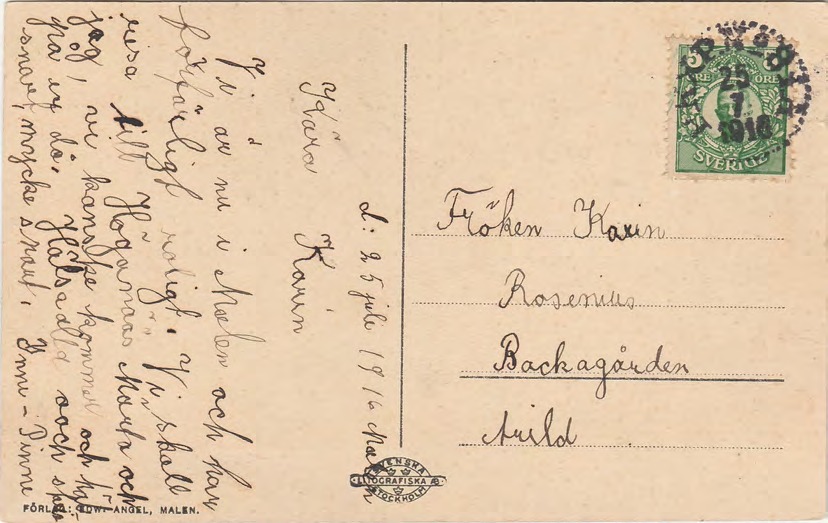 d. 25 juli 1916 Malen
Kära Karin
Vi är nu i Malen och har
förfärligt roligt. Vi skall
resa till Höganäs Märta och
jag, vi kanske kommer och
på eq då. Hälsa alla och
snart, mycke snart. Ynni-Pinne
FÖRLAG: EDW. ANGEL, MALEN.
SVENSKA
LITOGRAFISKA AB.
STOCKHOLM
5 ÖRE
SVERIGE
25
7
1916
Fröken Karin
Rosenius
Backagården
Arild